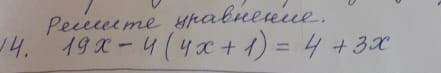 Решите уравнение.
14. 19x - 4(4x+1) = 4 + 3x